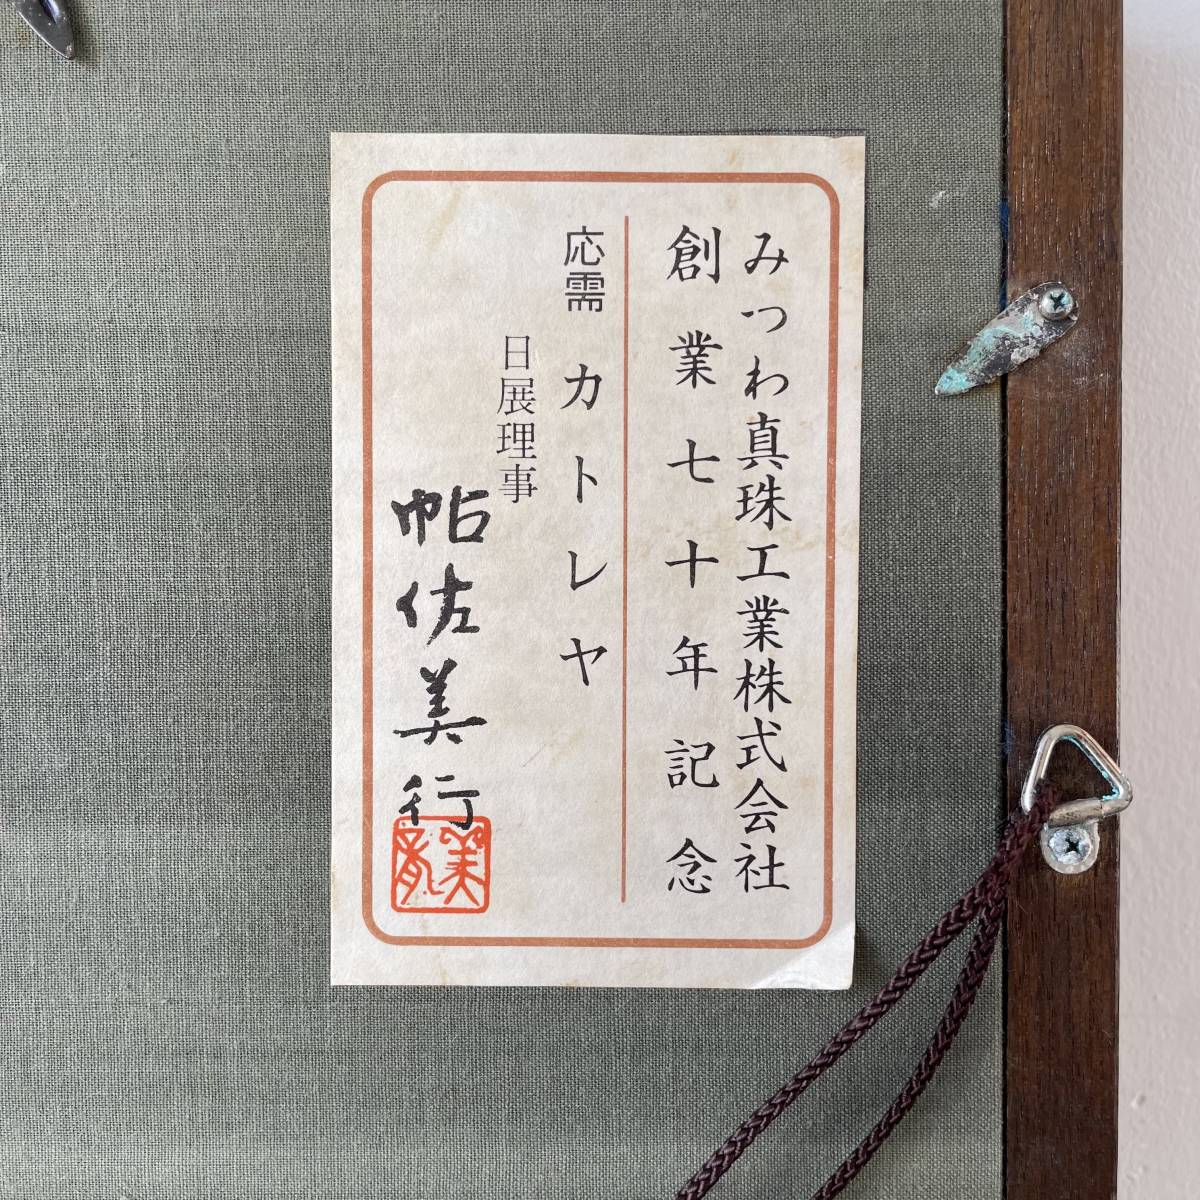 みつわ真珠工業株式会社
創業七十年記念
応需 カトレヤ
日展理事
帖佐美行